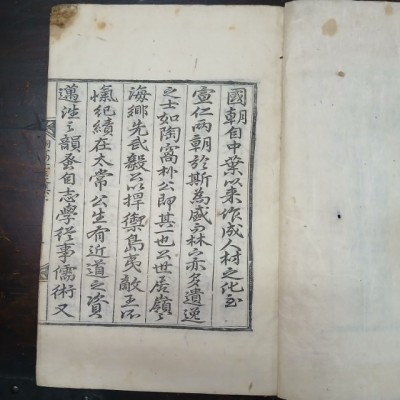 國朝自中葉以來作成人材之化至
宣仁兩朝於斯為盛而林之亦多遺逸
之士如陶窩朴公即其一也公世居嶺
海鄉先武毅公以捍禦島夷敵王所
愾紀績在太常公生有近道之資
邁往之韻蚤自志學從事儒術又